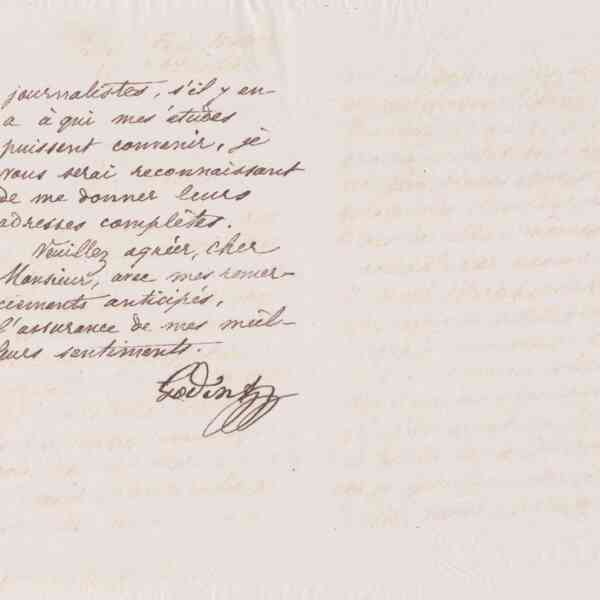 journalistes, s'il y en-
a à qui mes études
puissent convenir, je
vous serai reconnaissant
de me donner leurs
adresses complètes.
Veuillez agréer, cher
Monsieur, avec mes remer-
ciements anticipés,
l'assurance de mes meil-
leurs sentiments.
Godin